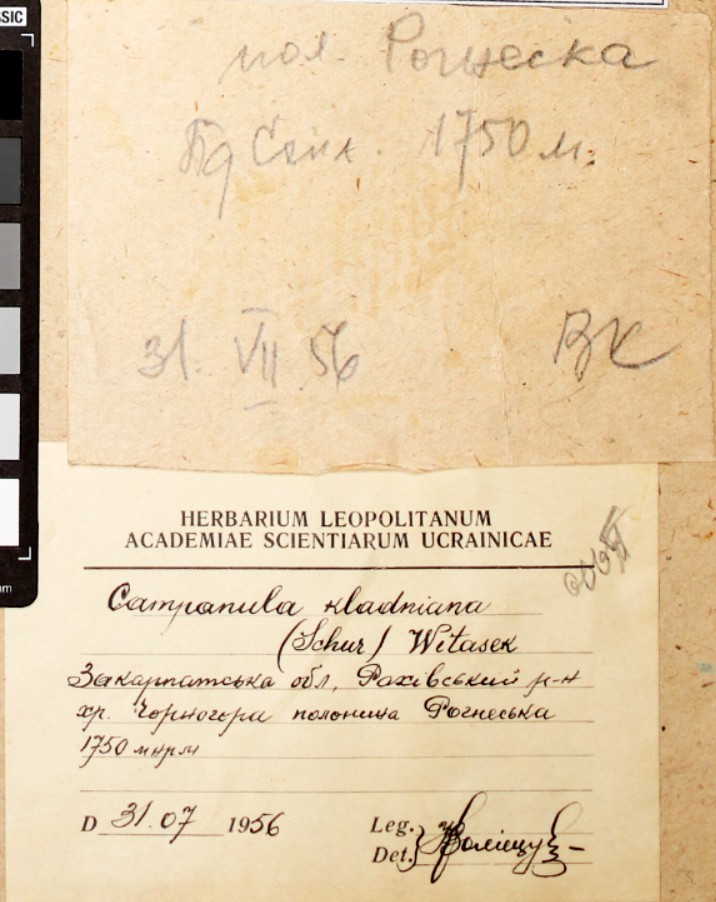 SIC
пол. Рогнеска
Пд Схил. 1750 м.
31. VII 56 ВК
HERBARIUM LEOPOLITANUM
ACADEMIAE SCIENTIARUM UCRAINICAE
Campanula kladniana
(Schur) Witasek
Закарпатська обл, Рахівський р-н
хр. Чорногора полонина Рогнеська
1750 мнрм
D 31.07 1956 Leg.
Det.